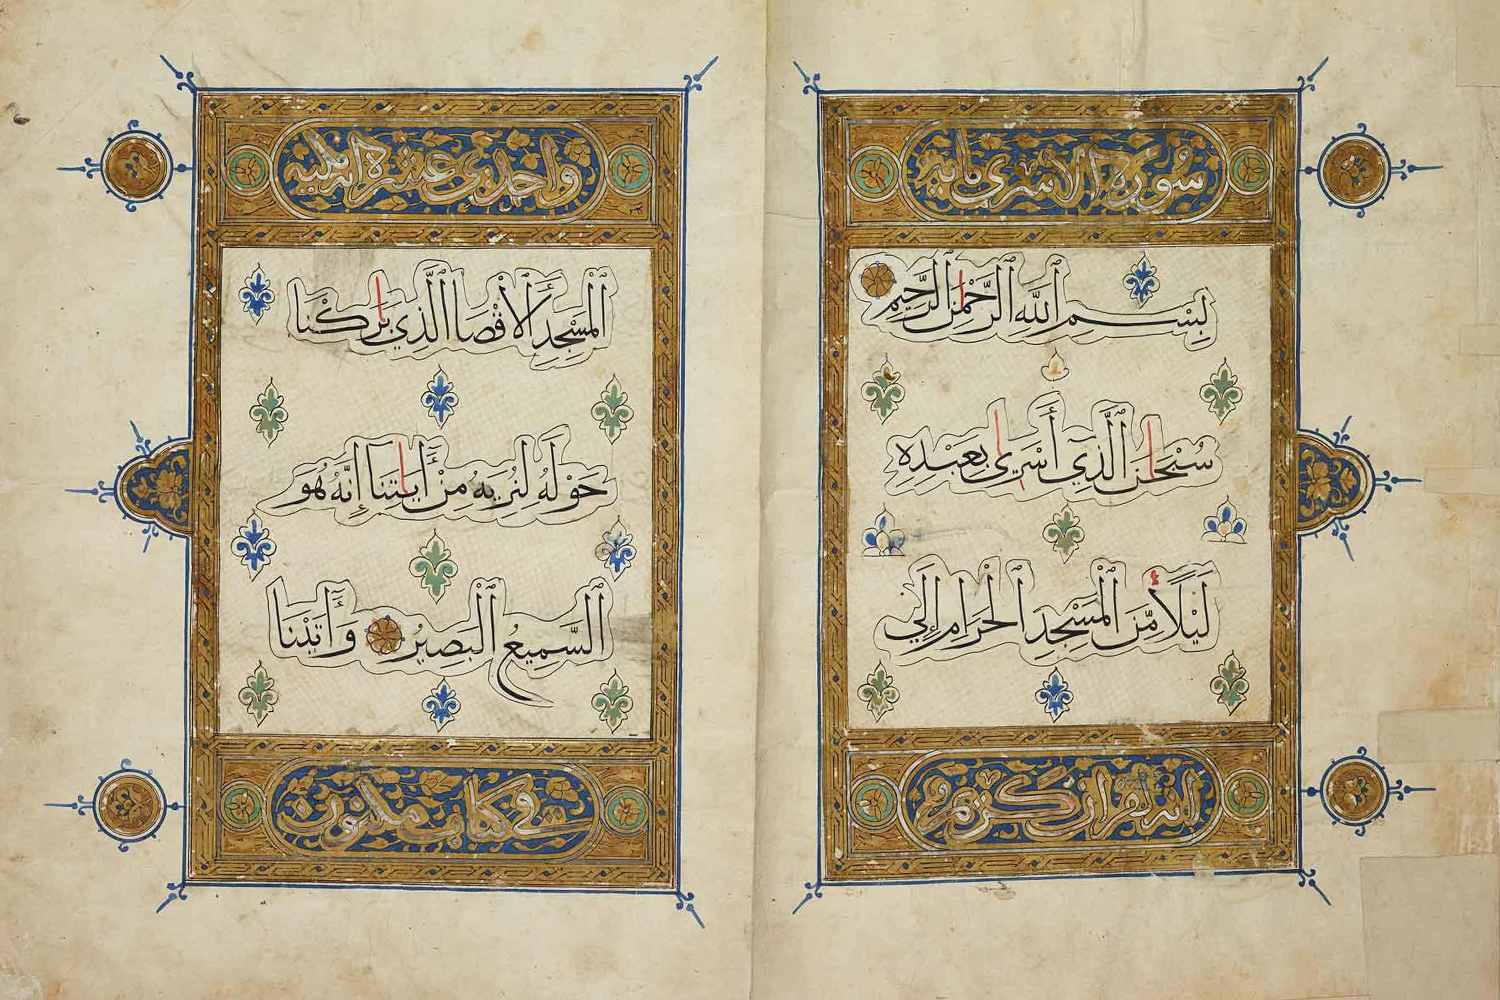 سورة الاسرى ماية
بِسْمِ اللَّهِ الرَّحْمٰنِ الرَّحِيمِ
سُبْحٰنَ الَّذِي أَسْرٰى بِعَبْدِهِ
لَيْلًا مِّنَ الْمَسْجِدِ الْحَرَامِ إِلَى
انه لقران كريم
واحدى عشرة اية
الْمَسْجِدِ الْأَقْصَا الَّذِي بٰرَكْنَا
حَوْلَهُ لِنُرِيَهُ مِنْ أٰيٰتِنَا إِنَّهُ هُوَ
السَّمِيعُ الْبَصِيرُ وَأٰتَيْنَا
في كتاب مكنون